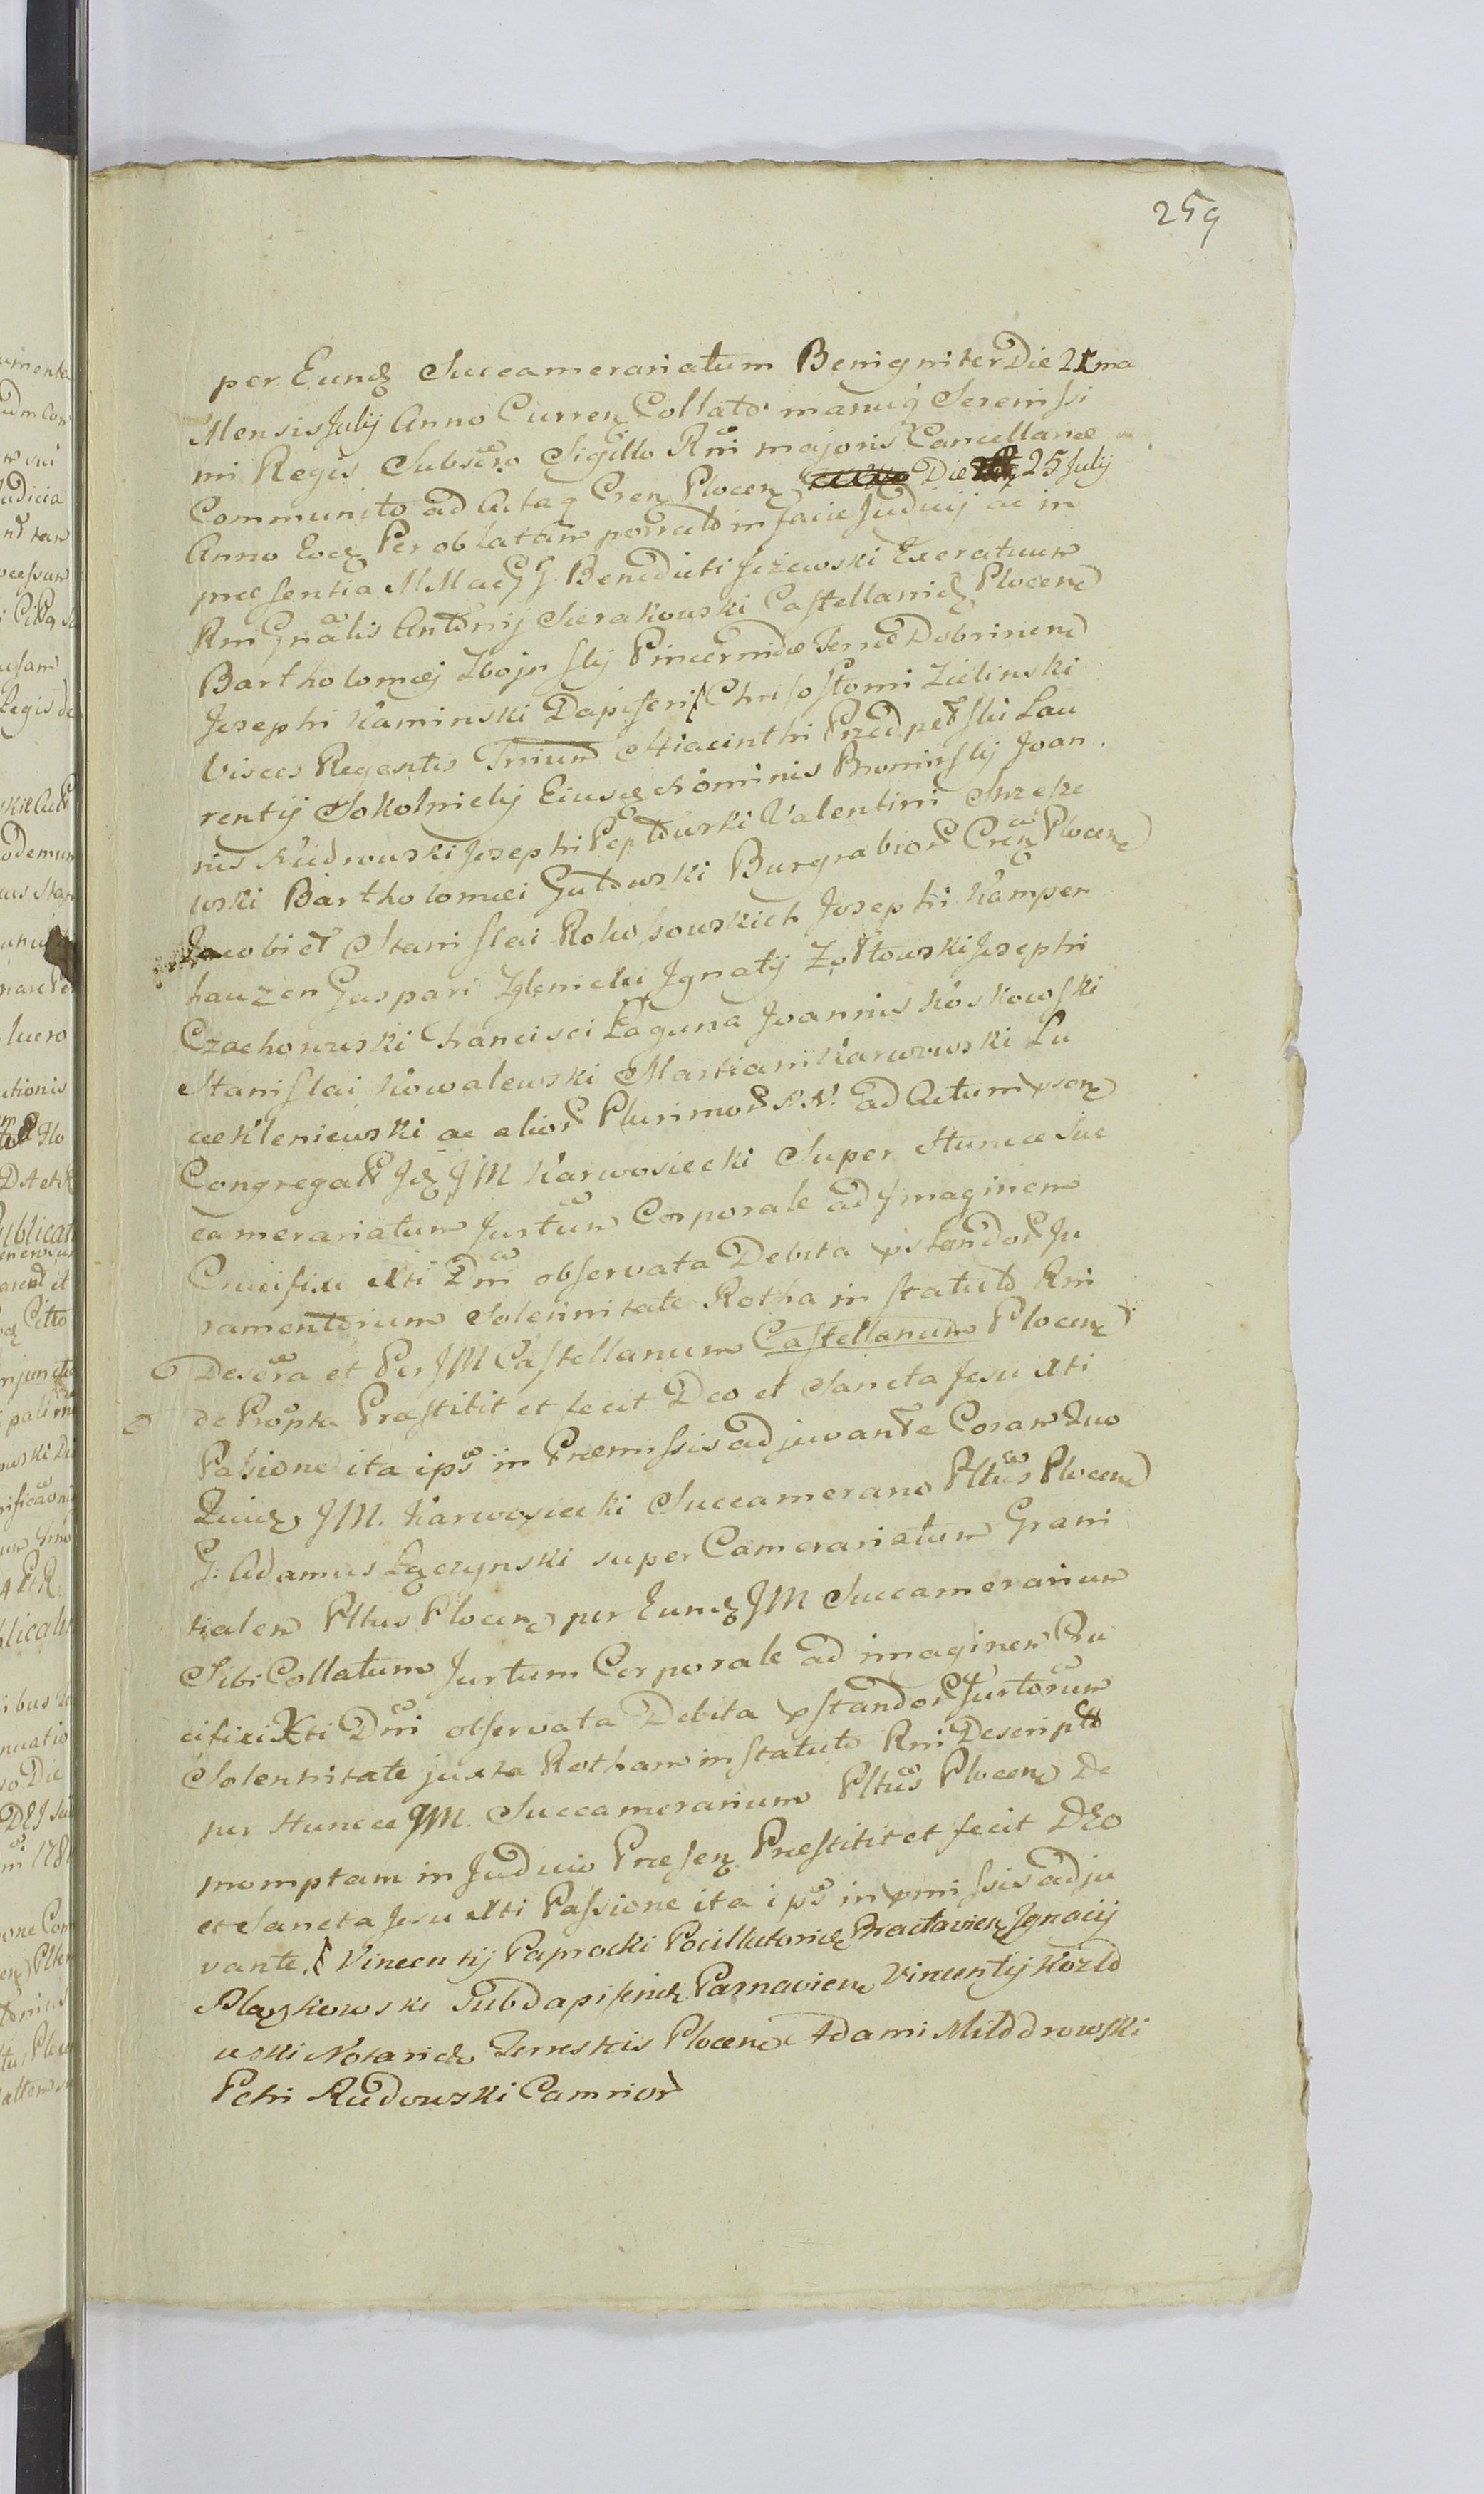 259
per Eund Succamerariatum Benigniter Die 21ma
Mensis Julij Anno Curren Collato manuq Serenissi
mi Regis Subscro Sigillo Rni majoris Cancellariæ
Communito ad Actaq Cren Plocen Die 25 Julij
Anno Eod Per oblatam porrecto in facie Judicij ac in
præsentia MMaeGG. Benedicti Jeżewski Exeratuum
Rni Gnalis Antonij Sierakowski Castellanid Plocen
Bartholomæi Zbojnskij Pincernidæ Terræ Dobrinen
Josephi Kaminski Dapiferi Chrisostomi Zielinski
Vices Regentis Trium Hiacinthi Przedpełski Lau
rentij Sokolnickij Eiusd Nominis Brominskij Joan
nis Kudrowski Josephi Peptowski Valentini Strzeże
wski Bartholomæi Gutowski Burgrabior Cren Plocen
Jacobi et Stanislai Rokossowskich Josephi Kampen
hauzen Gaspari Zglenicki Ignatij Żołtowski Josephi
Czachowski Francisci Łaguna Joannis Koskowski
Stanislai Kowalewski Martiani Karwowski Lu
cæ Kleniewski ac alior Plurimor N.N. ad Actum psen
Congregat Id JM Karwosiecki Super Huncce Suc
camerariatum Jurtum Corporale ad Imaginem
Crucifixi Xti Dni observata Debita pstandor Ju
ramentorum Solennitate Rotha in statuto Rni
Descra et Per JM Castellanum Castellanum Plocen
de Propta Præstitit et fecit Deo et Sancta Jesu Xti
Passione ita ips in Præmissis adjuvante Coram Quo
Quid JM. Karwosiecki Succamerario Pltus Plocen
G. Adamus Łączynski super Camerariatum Grani
tialem Pltus Plocen per Eund JM Succamerarium
Sibi Collatum Jurtum Corporale ad imaginem Cru
cifixi Xti Dni observata Debita pstandor Jurtorum
Solennitate juxta Rotham in statuto Rni Descripto
per Huncce JM. Succamerarium Pltus Plocen De
promptam in Judicio Præsen Præstitit et fecit DEO
et Sancta Jesu Xti Passione ita ips in pmissis adju
vante. Vincentij Paprocki Pocillatorid Bractavien Ignacij
Płazkowski Subdapiferid Parnavien Vincentij Kozło
wski Notarid Terrestris Plocen Adami Mitodrowski
Petri Rudowski Camrior